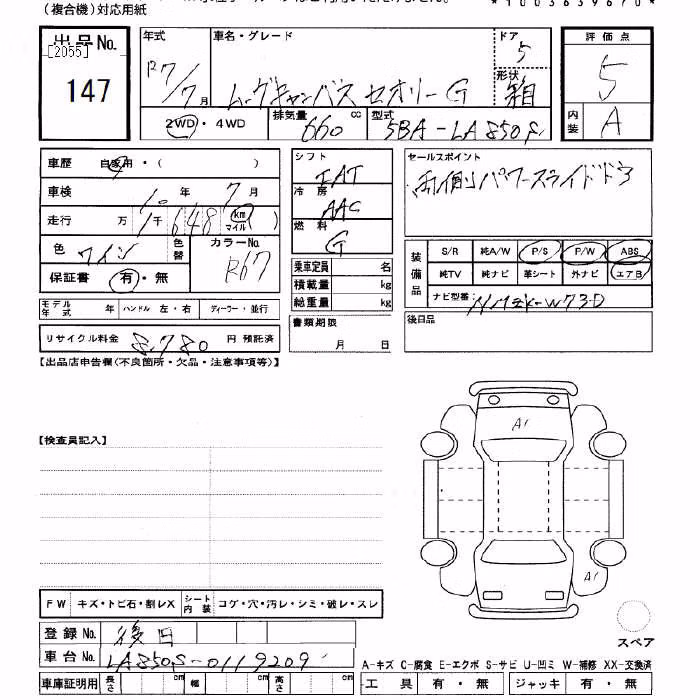 (複合機)対応用紙
*1003639670*
出品No.
[2055]
147
年式
R7/7月
車名・グレード
ムーヴキャンバス セオリーG
ドア
5
形状
箱
評価点
5
内装
A
2WD・4WD
排気量
660
cc
型式
5BA-LA850S
車歴
自家用・( )
車検
10年 7月
走行
万 1千648
km
マイル
色
ワイン
色替
カラーNo.
R67
保証書
有・無
シフト
IAT
冷房
AAC
燃料
G
乗車定員
名
積載量
kg
総重量
kg
セールスポイント
両側パワースライドドア
装備品
S/R 純A/W P/S P/W ABS
純TV 純ナビ 革シート 外ナビ エアB
ナビ型番:
NMZK-W73D
モデル年式
年
ハンドル 左・右
ディーラー・並行
書類期限
月 日
後日品
リサイクル料金
8,780
円 預託済
【出品店申告欄(不良箇所・欠品・注意事項等)】
A1
【検査員記入】
A1
FW キズ・トビ石・割レX
シート内装
コゲ・穴・汚レ・シミ・破レ・スレ
スペア
登録No.
後日
車台No.
LA850S-0119209
A-キズ C-腐食 E-エクボ S-サビ U-凹ミ W-補修 XX-交換済
車庫証明用
長さ
cm
幅
cm
高さ
cm
工具 有・無 ジャッキ 有・無